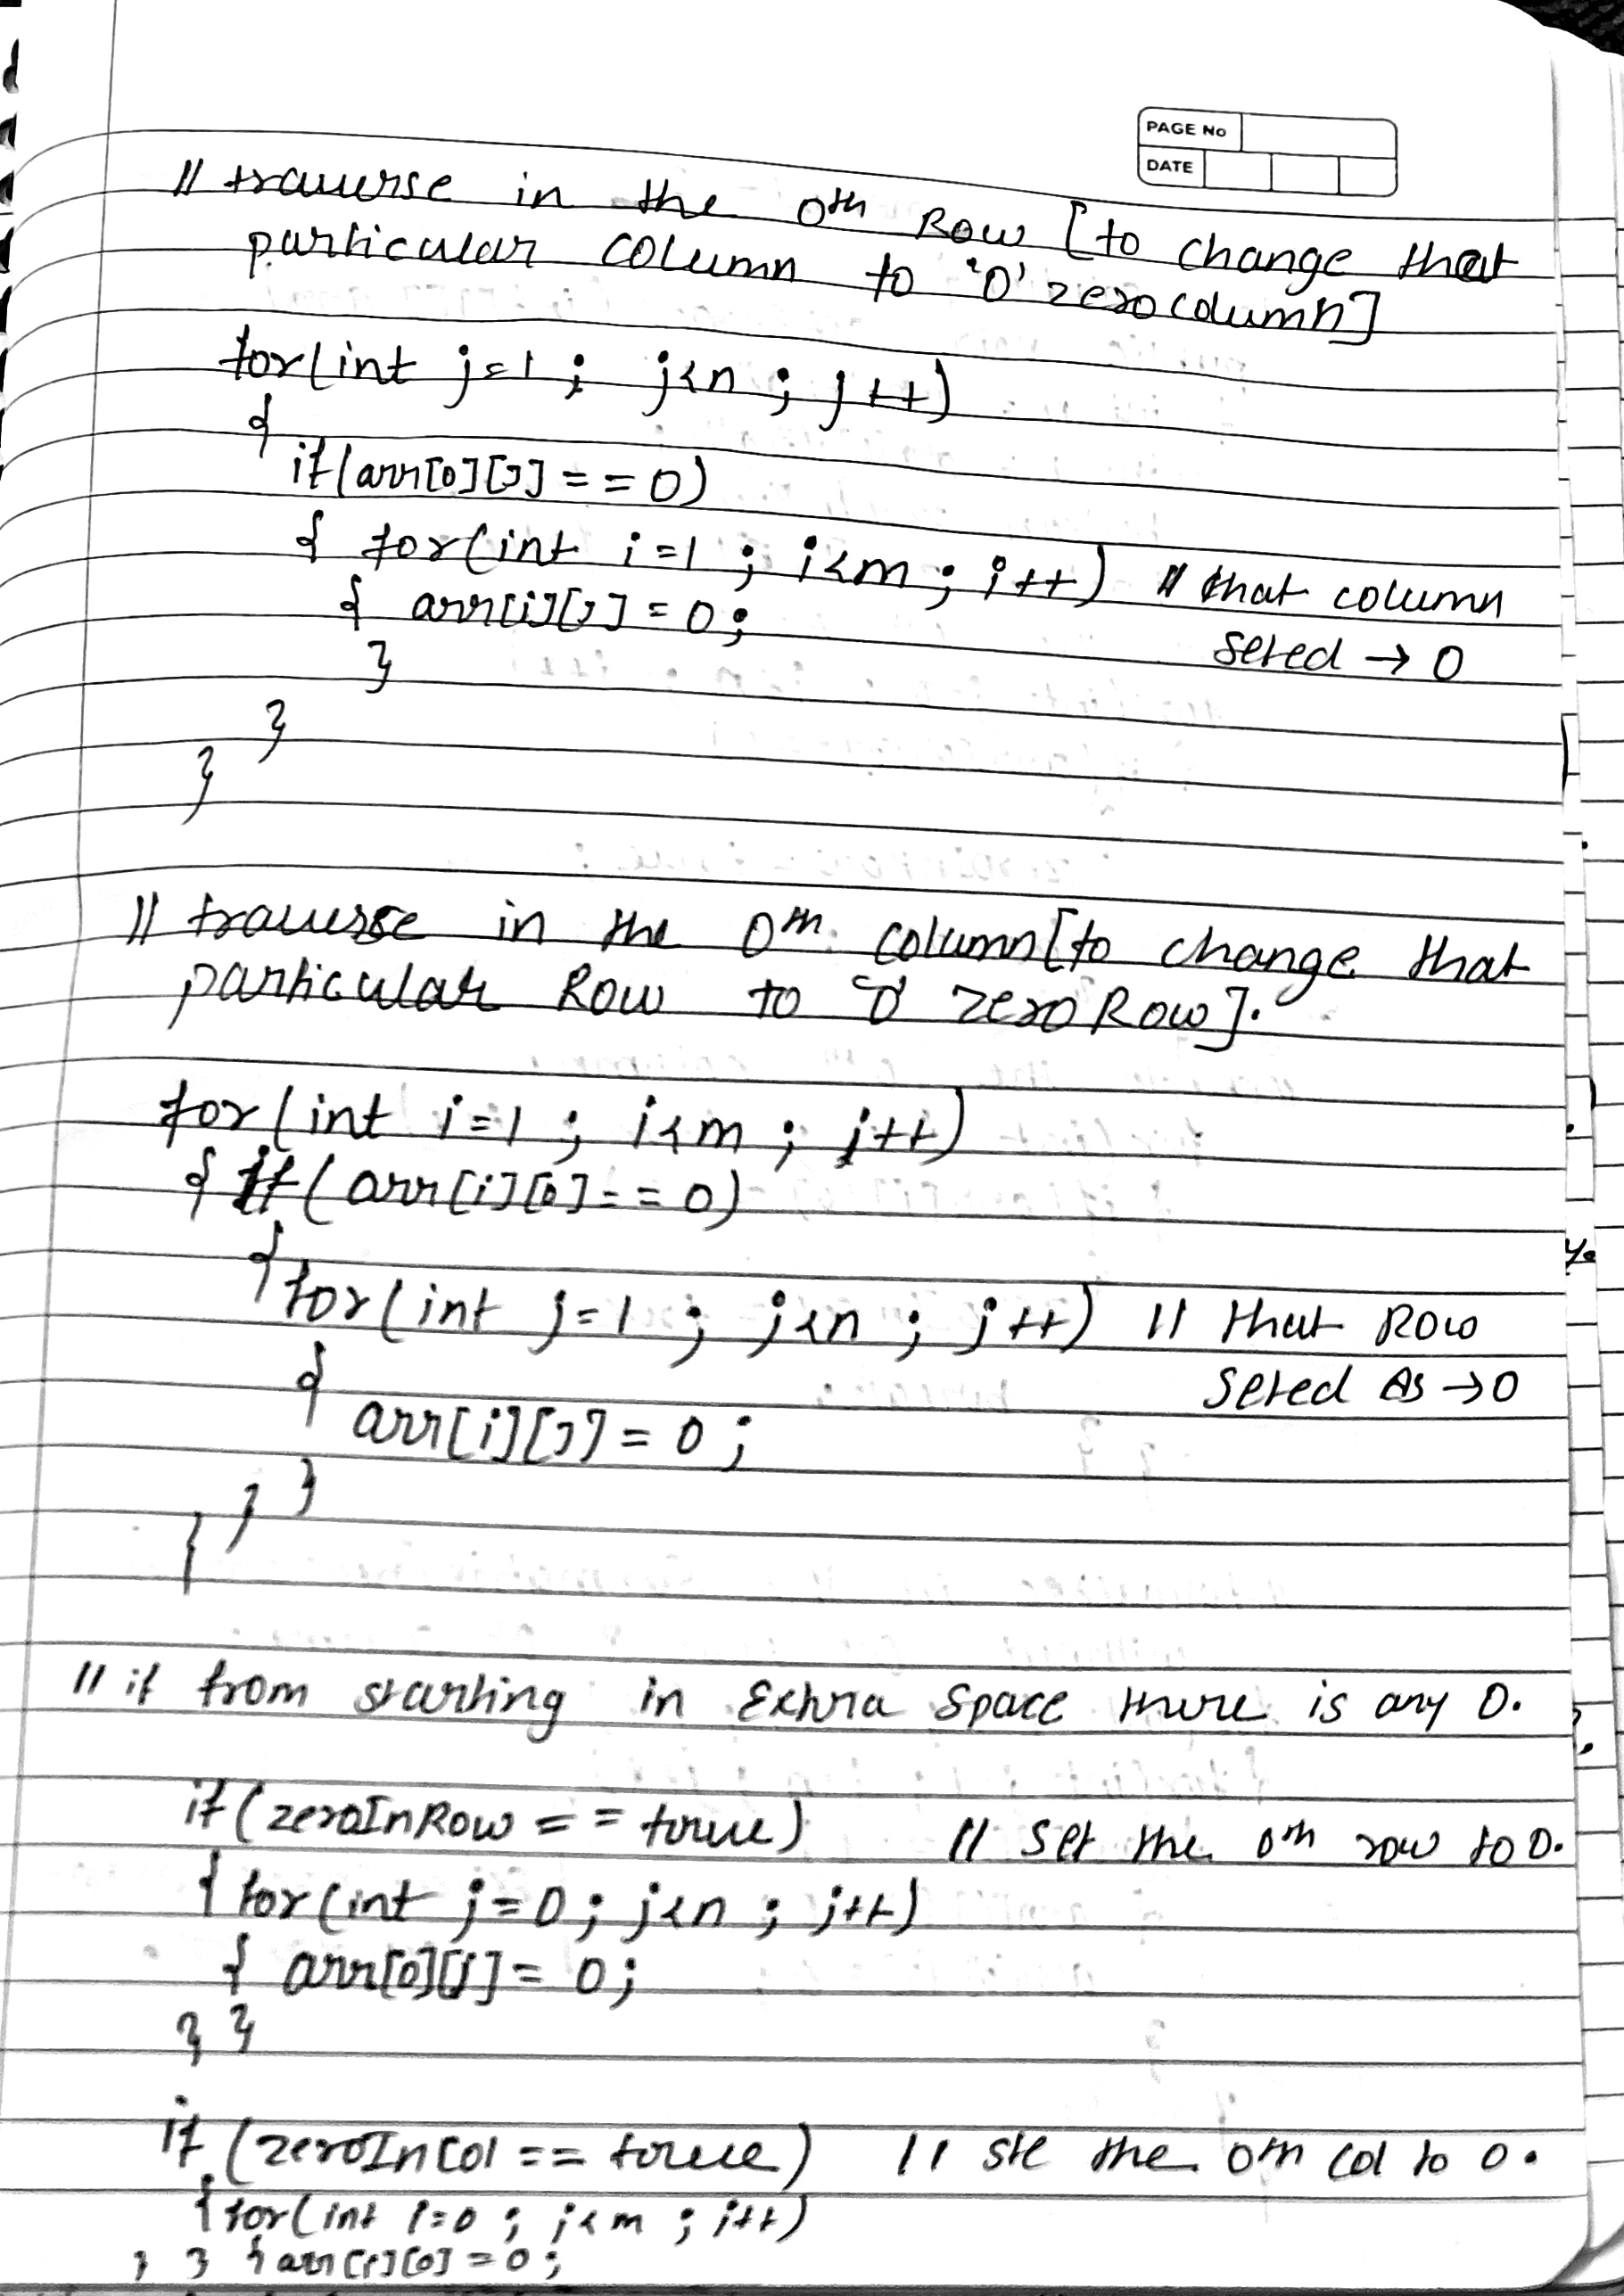 PAGE No
DATE
// traverse in the 0th Row [to change that
particular column to '0' zero column]
for(int j=1 ; j<n ; j++)
{
if(arr[0][j]==0)
{ for(int i=1 ; i<m ; i++) // that column
{ arr[i][j]=0; seted → 0
}
}
}
// traverse in the 0th column [to change that
particular Row to '0' zero Row].
for(int i=1 ; i<m ; i++)
{ if(arr[i][0]==0)
{
for(int j=1 ; j<n ; j++) // that Row
{ seted As → 0
arr[i][j]=0;
}
}
}
// if from starting in Extra Space there is any 0.
if(zeroInRow == true) // set the 0th row to 0.
{ for(int j=0; j<n ; j++)
{ arr[0][j]=0;
} }
if (zeroInCol == true) // ste the 0th col to 0.
{ for(int i=0 ; i<m ; i++)
} } { arr[i][0]=0;